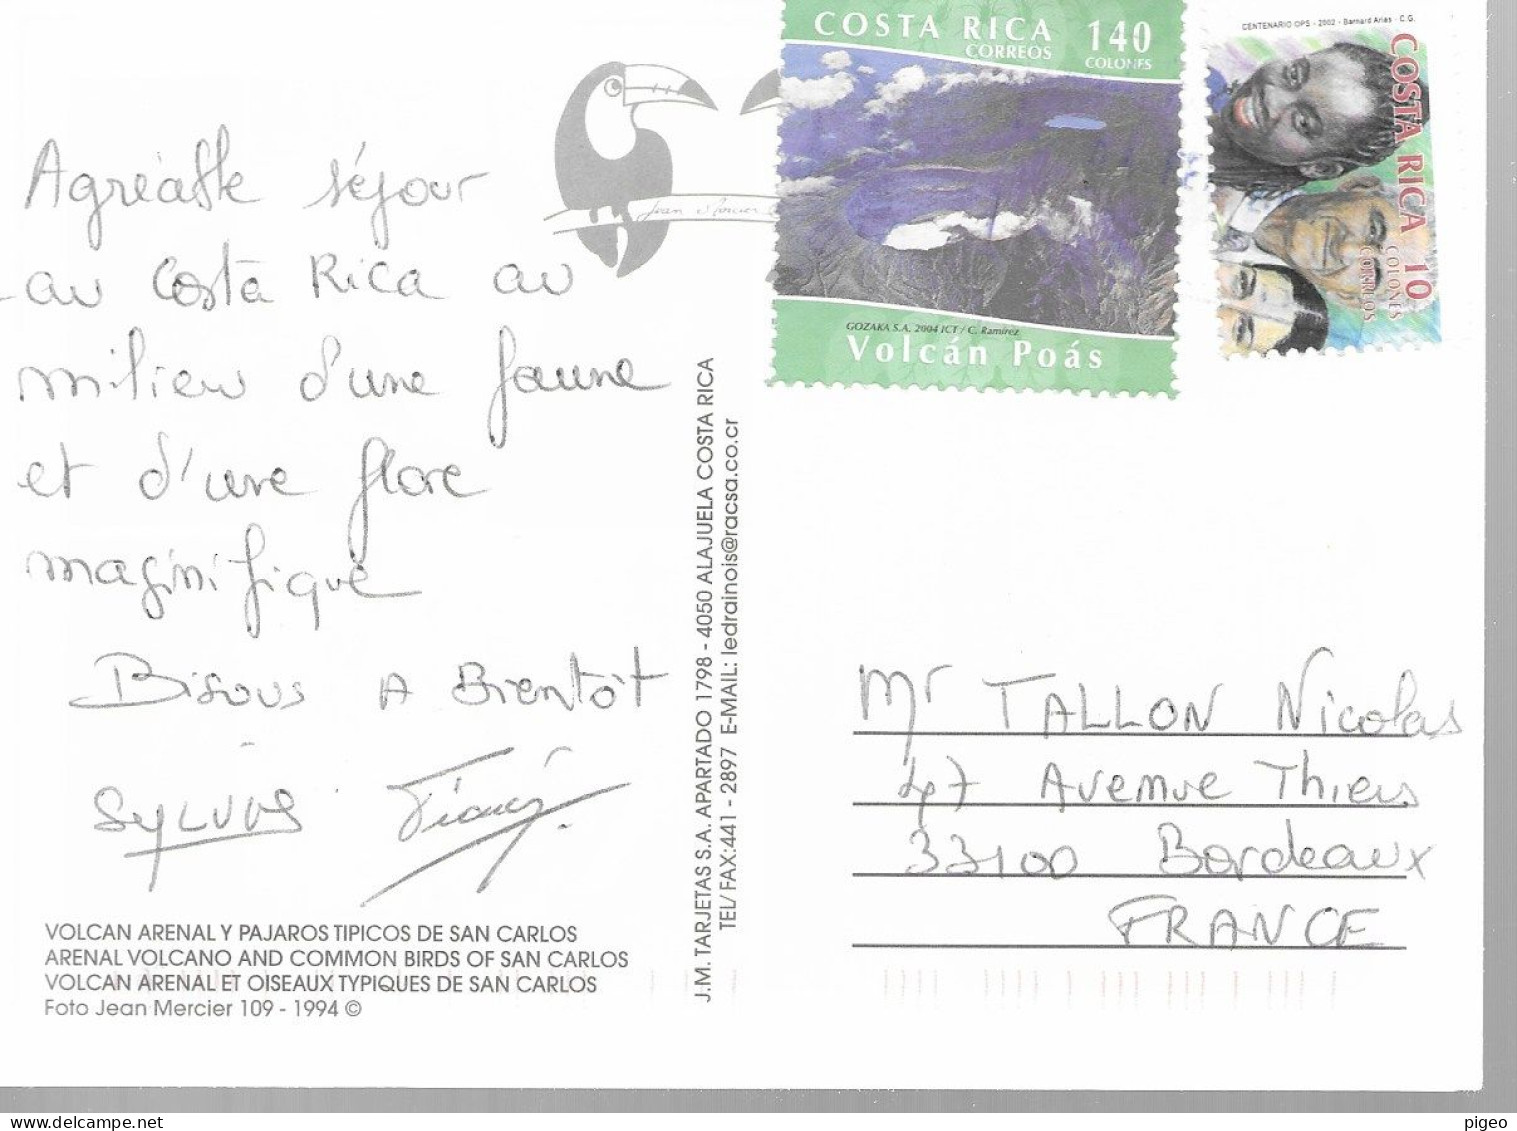 Agréable séjour
au Costa Rica au
milieu d'une faune
et d'une flore
magnifique
Bisous A Bientôt
Jean Mercier
COSTA RICA 140
CORREOS COLONES
GOZAKA S.A. 2004 ICT / C. Ramírez
Volcán Poás
CENTENARIO OPS - 2002 - Barnard Arias - C.G.
COSTA RICA 10
COLONES
CORREOS
J.M. TARJETAS S.A. APARTADO 1798 - 4050 ALAJUELA COSTA RICA
TEL/ FAX:441 - 2897 E-MAIL: ledrainois@racsa.co.cr
Mr TALLON Nicolas
47 Avenue Thiers
33100 Bordeaux
FRANCE
VOLCAN ARENAL Y PAJAROS TIPICOS DE SAN CARLOS
ARENAL VOLCANO AND COMMON BIRDS OF SAN CARLOS
VOLCAN ARENAL ET OISEAUX TYPIQUES DE SAN CARLOS
Foto Jean Mercier 109 - 1994 ©
pigeo